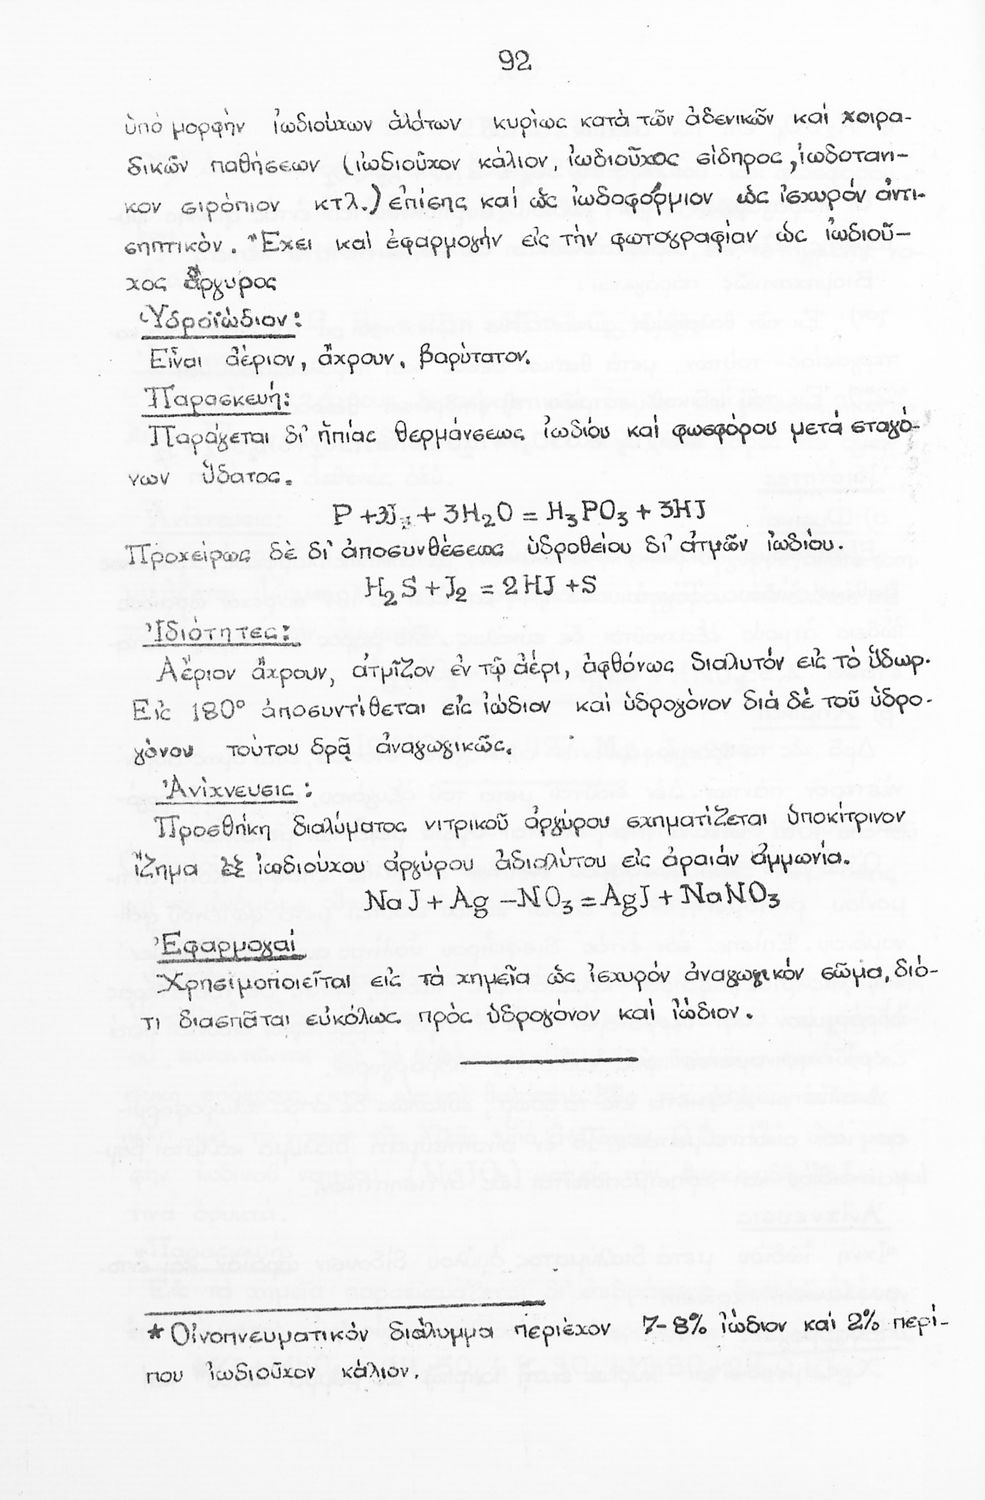 92
ὑπό μορφήν ἰωδιούχων ἁλάτων κυρίως κατά τῶν ἀδενικῶν καί χοιρα-
δικῶν παθήσεων (ἰωδιοῦχον κάλιον, ἰωδιοῦχος σίδηρος, ἰωδοτανι-
κον σιρόπιον κτλ.) ἐπίσης καί ὡς ἰωδοφόρμιον ὡς ἰσχυρόν ἀντι-
σηπτικόν. Ἔχει καί ἐφαρμογήν εἰς τήν φωτογραφίαν ὡς ἰωδιοῦ-
χος ἄργυρος
Ὑδροϊώδιον:
Εἶναι ἀέριον, ἄχρουν, βαρύτατον.
Παρασκευή:
Παράγεται δι' ἠπίας θερμάνσεως ἰωδίου καί φωσφόρου μετά σταγό-
νων ὕδατος.
P + 3J + 3H₂O = H₃PO₃ + 3HJ
Προχείρως δέ δι' ἀποσυνθέσεως ὑδροθείου δι' ἀτμῶν ἰωδίου.
H₂S + J₂ = 2HJ + S
Ἰδιότητες:
Ἀέριον ἄχρουν, ἀτμῖζον ἐν τῷ ἀέρι, ἀφθόνως διαλυτόν εἰς τό ὕδωρ.
Εἰς 180° ἀποσυντίθεται εἰς ἰώδιον καί ὑδρογόνον διά δέ τοῦ ὑδρο-
γόνου τούτου δρᾷ ἀναγωγικῶς.
Ἀνίχνευσις:
Προσθήκη διαλύματος νιτρικοῦ ἀργύρου σχηματίζεται ὑποκίτρινον
ἵζημα ἐξ ἰωδιούχου ἀργύρου ἀδιαλύτου εἰς ἀραιάν ἀμμωνία.
NaJ + Ag - NO₃ = AgJ + NaNO₃
Ἐφαρμογαί
Χρησιμοποιεῖται εἰς τά χημεῖα ὡς ἰσχυρόν ἀναγωγικόν σῶμα, διό-
τι διασπᾶται εὐκόλως πρός ὑδρογόνον καί ἰώδιον.
* Οἰνοπνευματικόν διάλυμμα περιέχον 7-8% ἰώδιον καί 2% περί-
που ἰωδιοῦχον κάλιον.